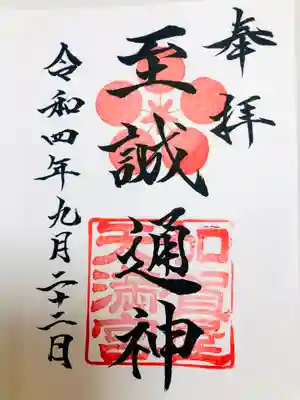 奉拝
至誠通神
令和四年九月二十二日